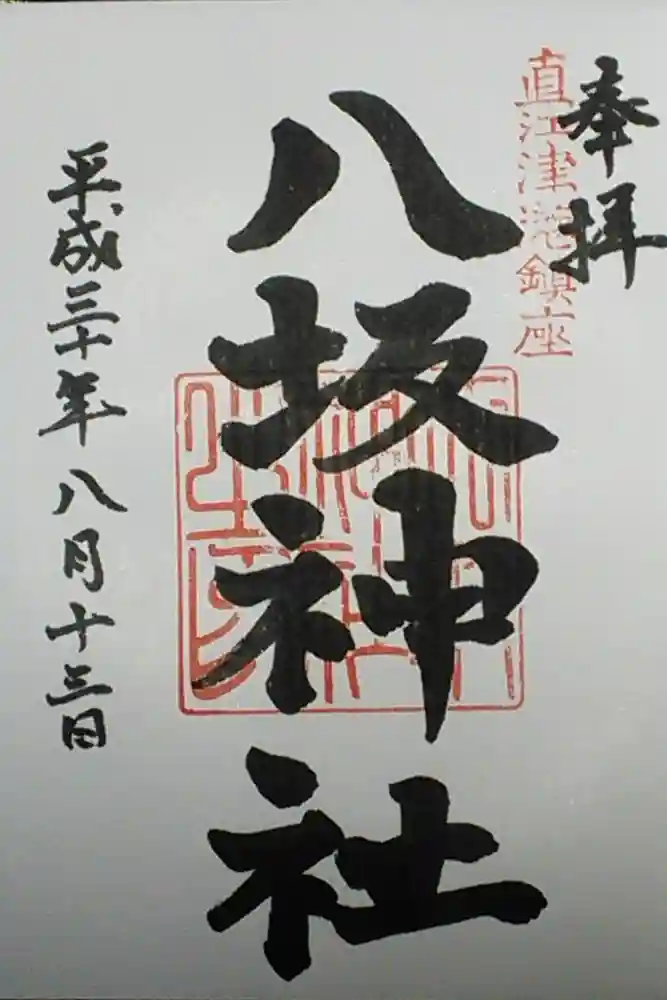 奉拝
直江津総鎮座
八坂神社
平成三十年八月十三日